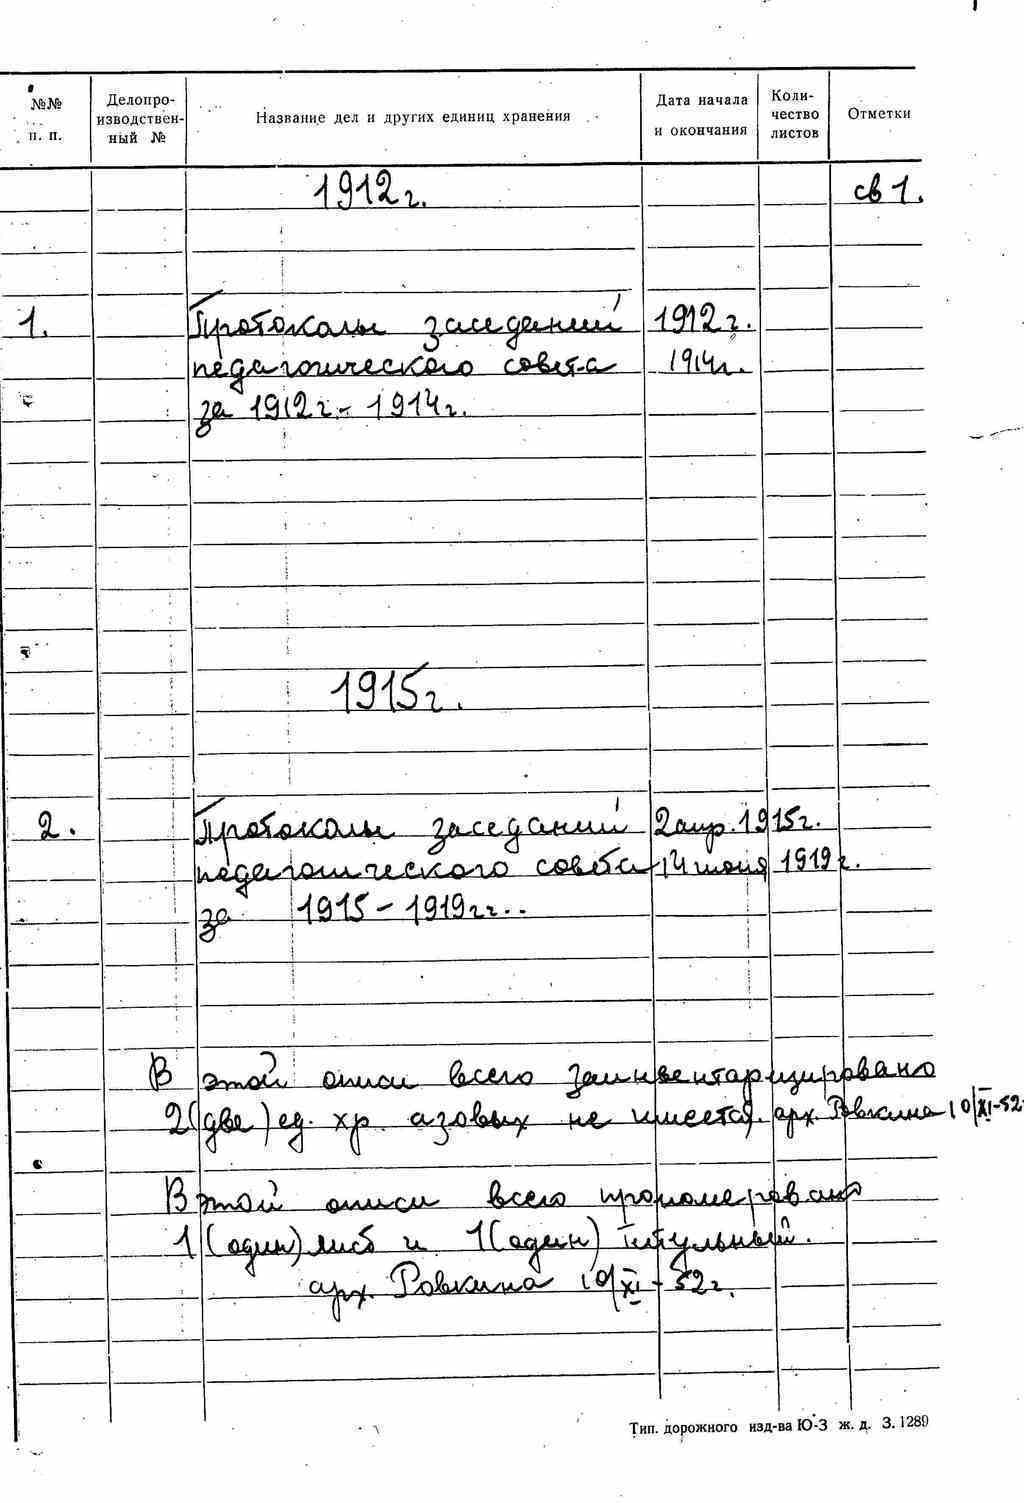 №№
п. п.
Делопро-
изводствен-
ный №
Название дел и других единиц хранения
Дата начала
и окончания
Коли-
чество
листов
Отметки
1912 г.
св 1.
1. Протоколы заседаний 1912 г.
педагогического совета 1914 г.
за 1912 г. - 1914 г.
1915 г.
2. Протоколы заседаний 2 апр. 1915 г.
педагогического совета 14 июня 1919 г.
за 1915 - 1919 гг..
В этой описи всего заинвентаризировано
2 (две) ед. хр. азовых не имеется. арх. Ровкина 10/XI-52
В этой описи всего пронумеровано
1 (один) лист и 1 (один) титульный.
арх. Ровкина 10/XI - 52 г.
Тип. дорожного изд-ва Ю-З ж. д. З. 1289